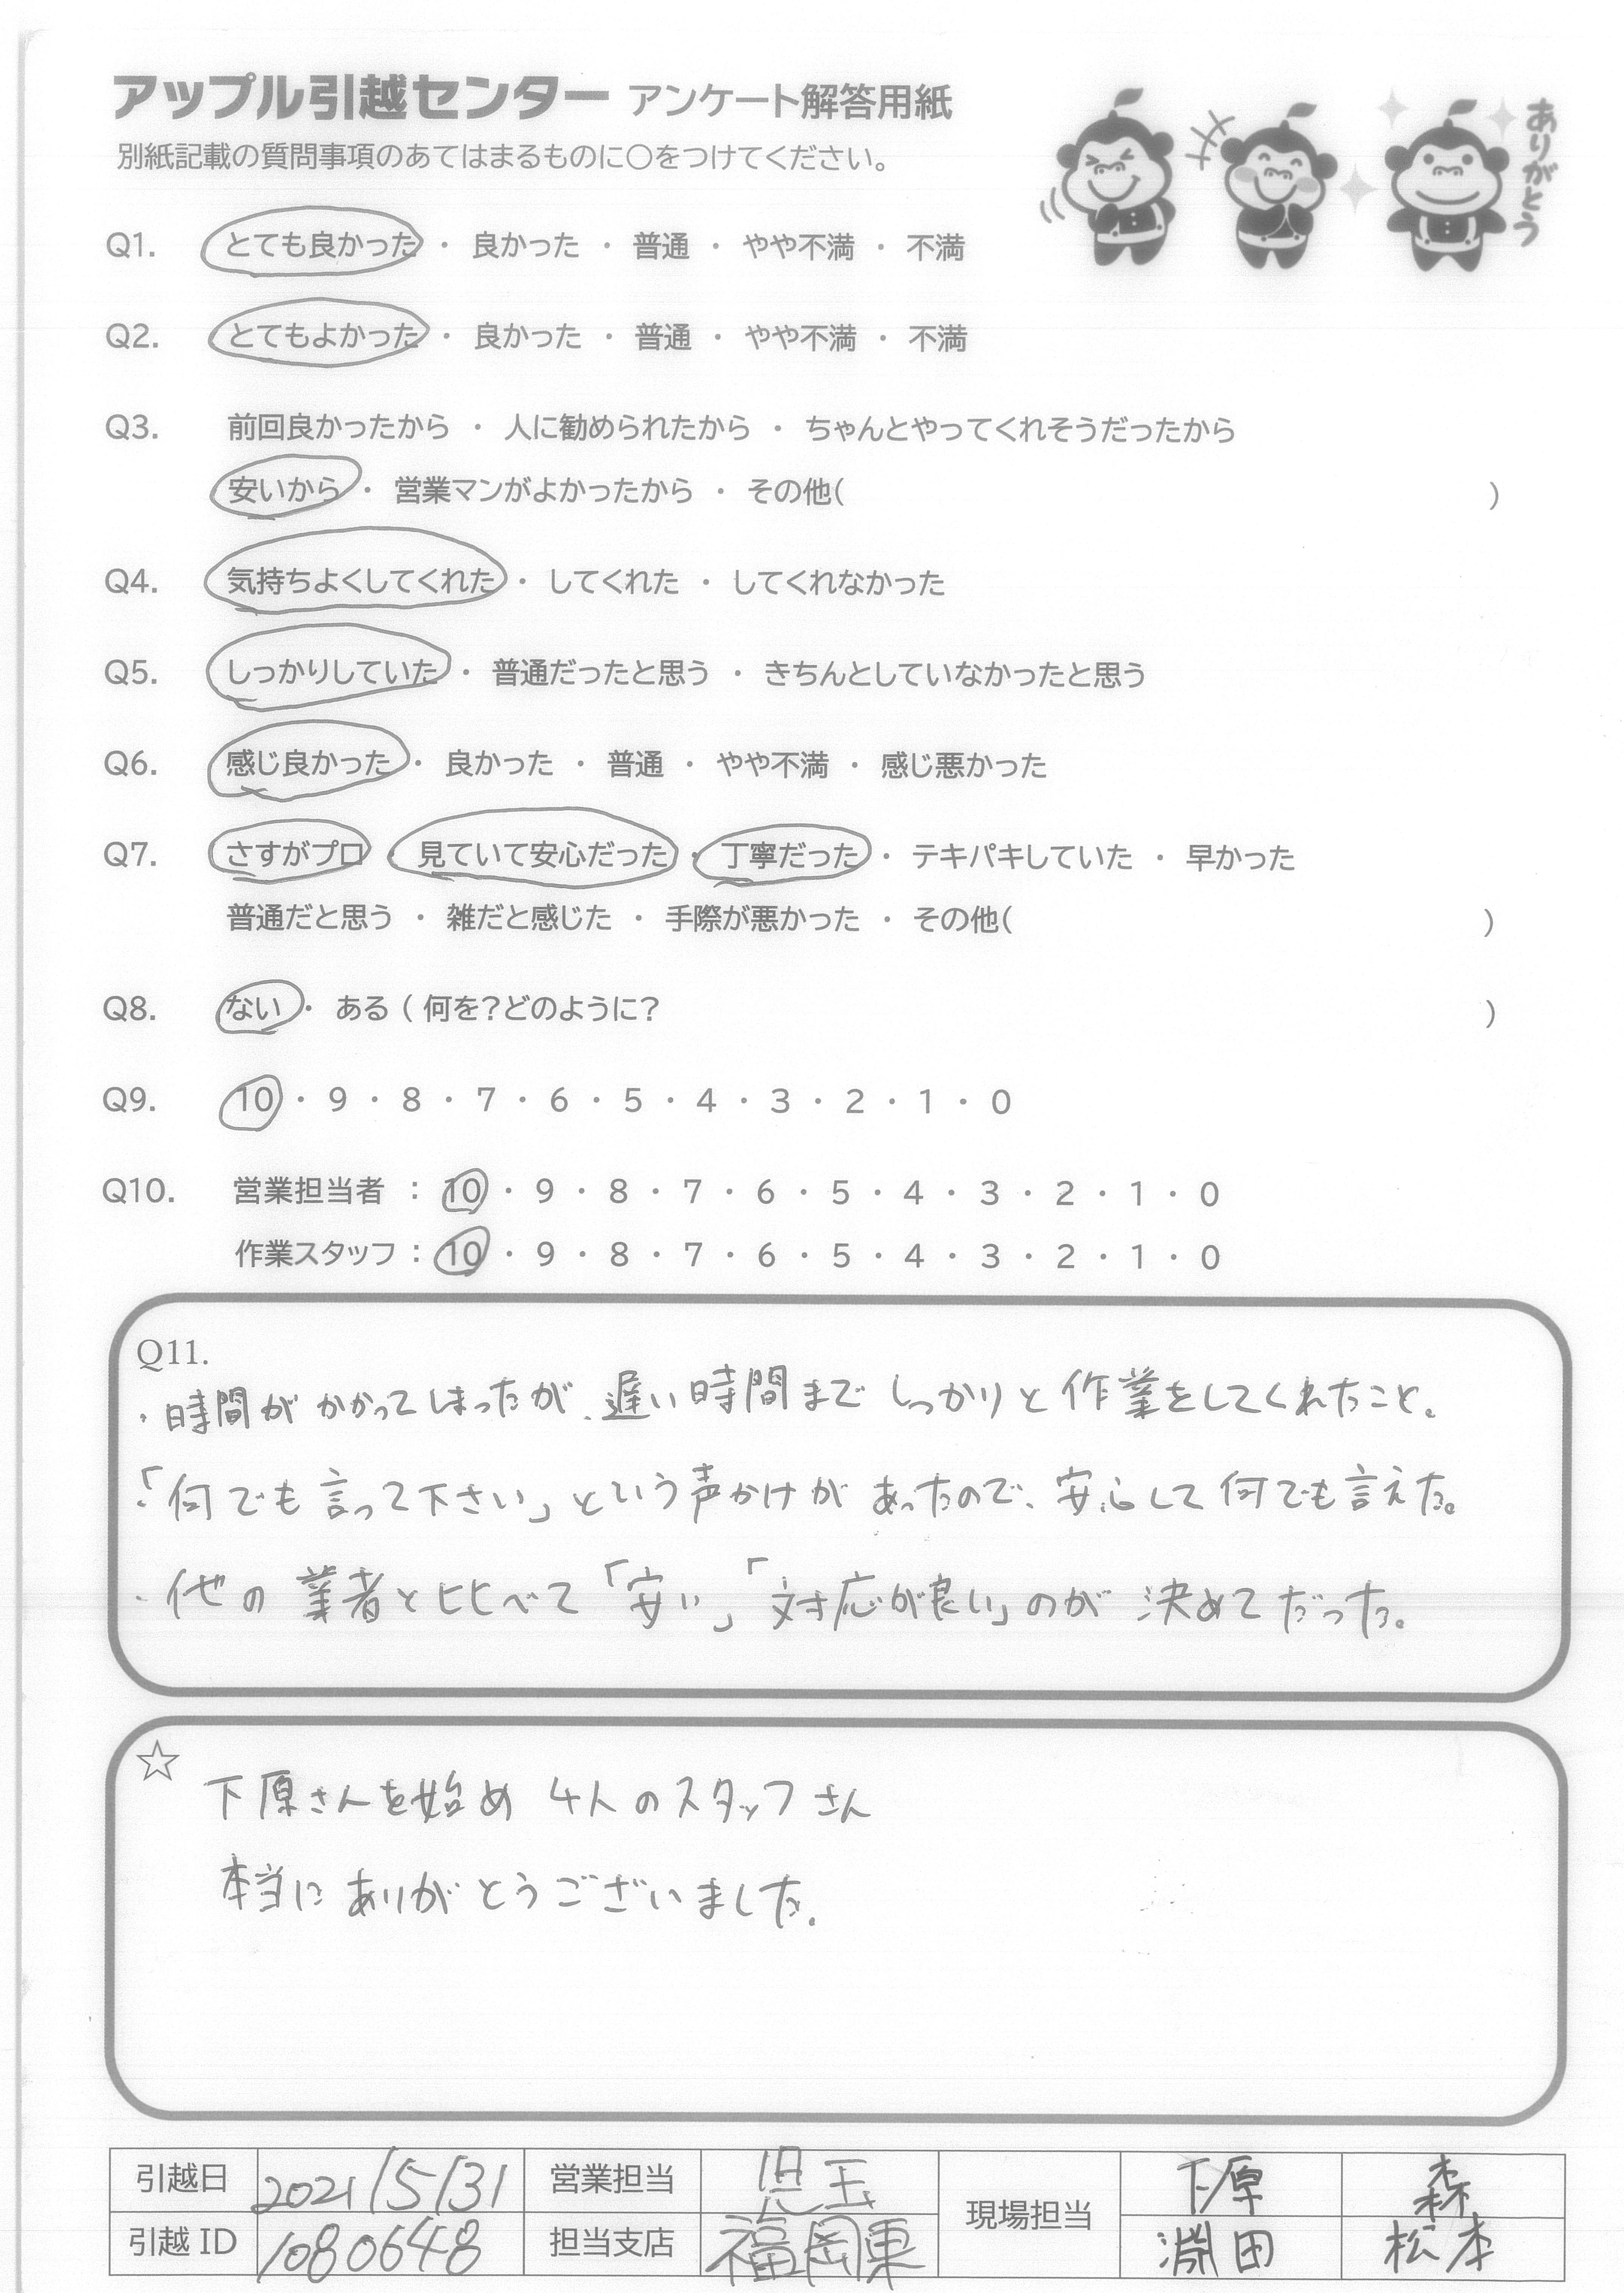 アップル引越センター アンケート解答用紙
別紙記載の質問事項のあてはまるものに○をつけてください。
ありがとう
Q1. とても良かった ・ 良かった ・ 普通 ・ やや不満 ・ 不満
Q2. とてもよかった ・ 良かった ・ 普通 ・ やや不満 ・ 不満
Q3. 前回良かったから ・ 人に勧められたから ・ ちゃんとやってくれそうだったから
安いから ・ 営業マンがよかったから ・ その他( )
Q4. 気持ちよくしてくれた ・ してくれた ・ してくれなかった
Q5. しっかりしていた ・ 普通だったと思う ・ きちんとしていなかったと思う
Q6. 感じ良かった ・ 良かった ・ 普通 ・ やや不満 ・ 感じ悪かった
Q7. さすがプロ ・ 見ていて安心だった ・ 丁寧だった ・ テキパキしていた ・ 早かった
普通だと思う ・ 雑だと感じた ・ 手際が悪かった ・ その他( )
Q8. ない ・ ある ( 何を?どのように? )
Q9. 10 ・ 9 ・ 8 ・ 7 ・ 6 ・ 5 ・ 4 ・ 3 ・ 2 ・ 1 ・ 0
Q10. 営業担当者 : 10 ・ 9 ・ 8 ・ 7 ・ 6 ・ 5 ・ 4 ・ 3 ・ 2 ・ 1 ・ 0
作業スタッフ : 10 ・ 9 ・ 8 ・ 7 ・ 6 ・ 5 ・ 4 ・ 3 ・ 2 ・ 1 ・ 0
Q11.
・時間がかかってしまったが、遅い時間までしっかりと作業をしてくれたこと。
・「何でも言って下さい」という声かけがあったので、安心して何でも言えた。
・他の業者と比べて「安い」「対応が良い」のが決めてだった。
☆ 下原さんを始め 4人のスタッフさん
本当にありがとうございました.
引越日 2021/5/31 営業担当 児玉 現場担当 下原 森
引越ID 1080648 担当支店 福岡東 淵田 松本